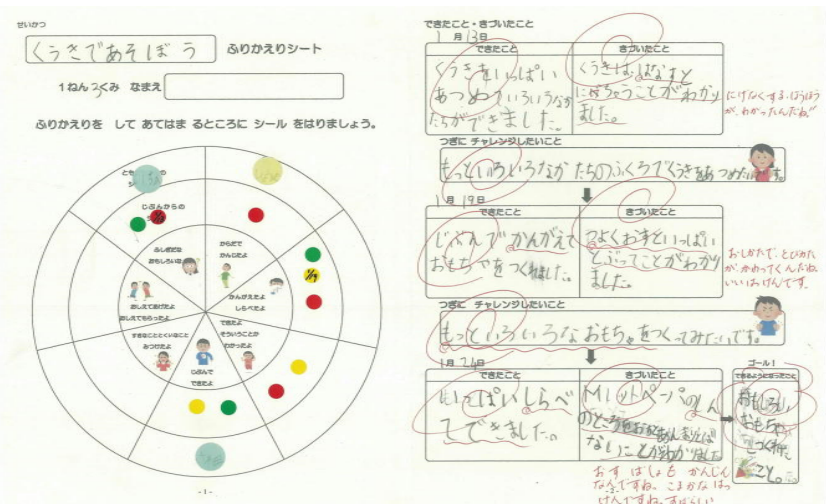 せいかつ
くうきであそぼう ふりかえりシート
1ねん3くみ なまえ
ふりかえりを して あてはま るところに シール をはりましょう。
とも の
シ
じぶんからの
ふしぎだな
おもしろいな
からだで
かんじたよ
1/19
おしえてあげたよ
おしえてもらったよ
かんがえたよ
しらべたよ
すきなことととくいなこと
みつけたよ
できたよ
そういうことか
わかったよ
じぶんで
できたよ
- 1 -
できたこと・きづいたこと
1月13日
できたこと
きづいたこと
くうきをいっぱい
あつめていろいろなか
たちができました。
くうきは、はなすと
にげちゃうことがわかり
ました。
にげなくする、ほうほう
が、わかったんだね。
つぎに チャレンジしたいこと
もっといろいろなか たちのふくろでくうきをあつめたいです。
1月19日
できたこと
きづいたこと
じぶんでかんがえて
おもちゃをつくれました。
つよくおすといっぱい
とぶってことがわかり
ました。
おしかたで、とびかた
が、かわってくんだね。
いいはっけんです。
つぎに チャレンジしたいこと
もっといろいろなおもちゃをつくってみたいです。
1月24日
できたこと
きづいたこと
いっぱいしらべ
てできました。
ットペーパのしん
のところを
ないことがわかりました
ゴール!
できるようになったこと
おもしろい
おもちゃ
をつくれた
こと。
おす ばしょも かんじん
なんですね。こまかなはっ
けんですね。すばらしい